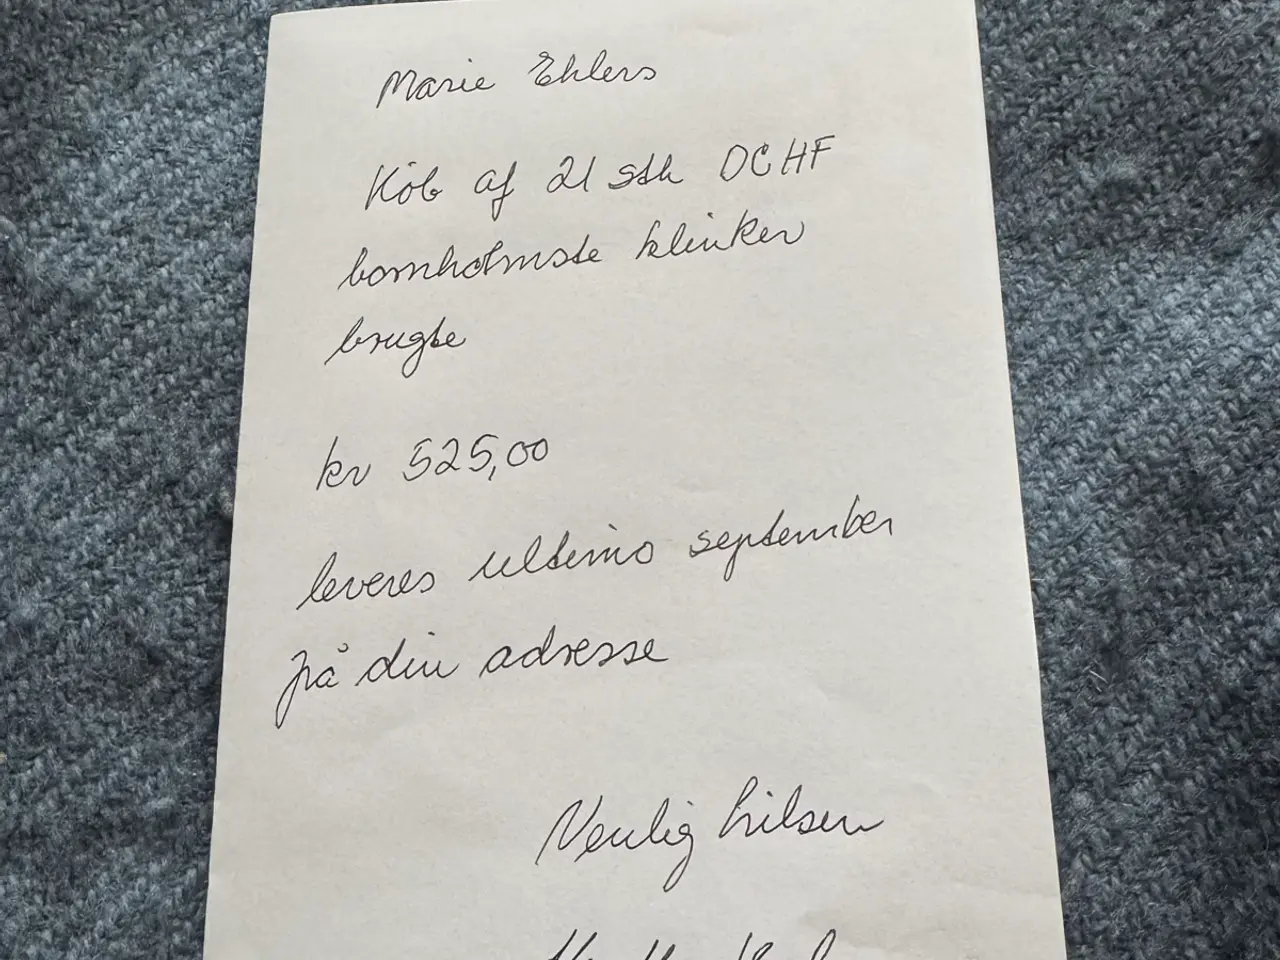 Marie Ehlers
Køb af 21 stk OCHF
bornholmste klinker
brugte
kr 525,00
leveres ultimo september
på din adresse
Venlig hilsen